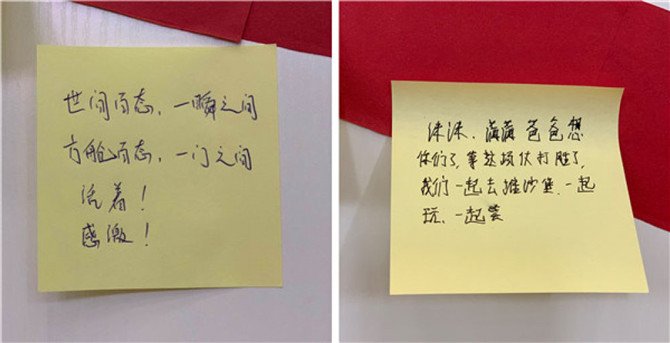 世间百态，一瞬之间
方舱百态，一门之间
活着！
感激！
沫沫、满满 爸爸想
你们了，等这场仗打胜了，
我们一起去堆沙堡，一起
玩、一起